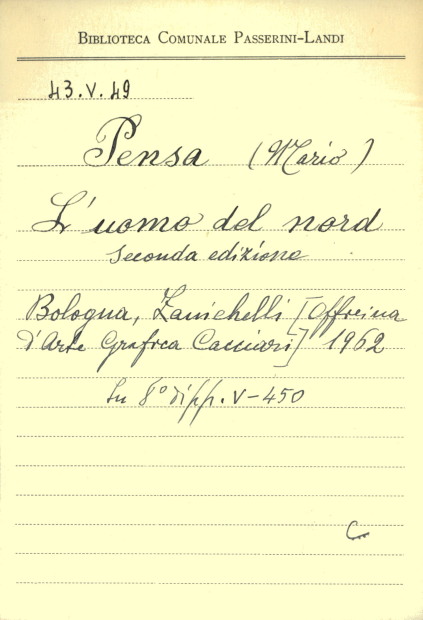 BIBLIOTECA COMUNALE PASSERINI-LANDI
43.V.49
Pensa (Mario)
L'uomo del nord
Seconda edizione
Bologna, Zanichelli [Officina
d'Arte Grafica Cacciari] 1962
In 8° di pp. V-450
C